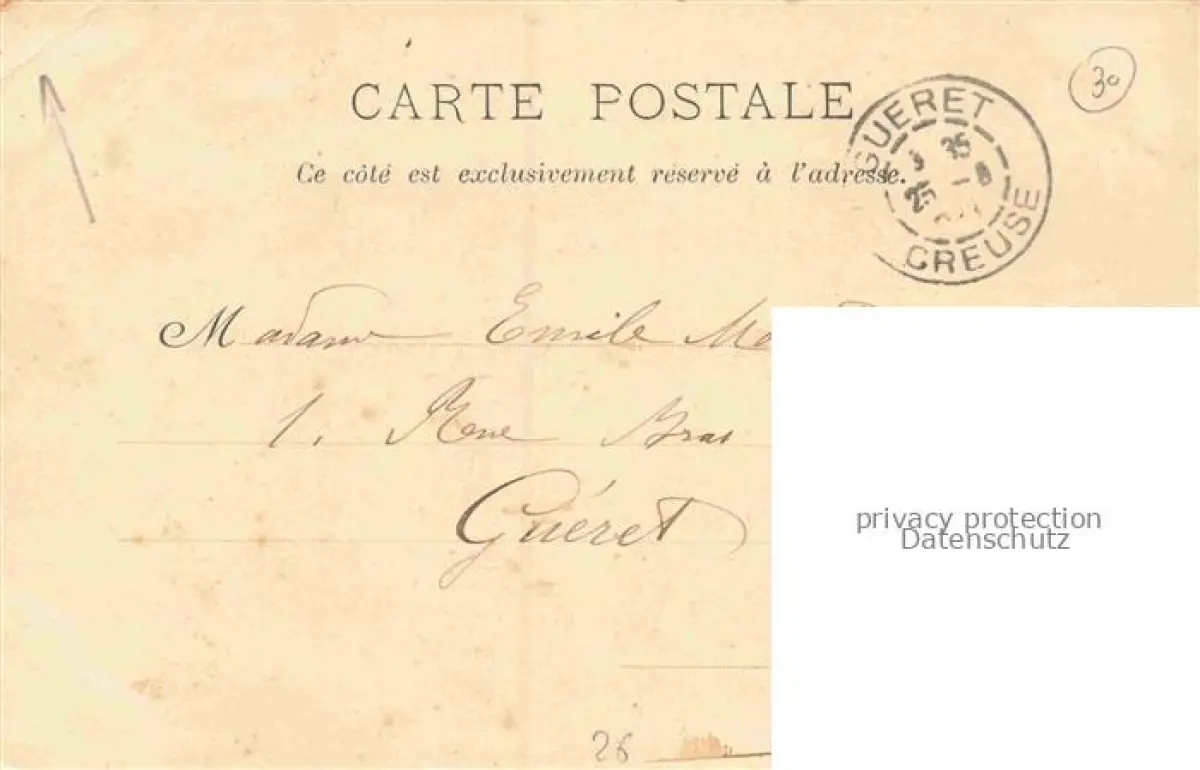 CARTE POSTALE
Ce côté est exclusivement réservé à l'adresse.
GUERET
35
25 - 8
CREUSE
30
Madame Emile
1. Rue Bras
Guéret
privacy protection
Datenschutz
26